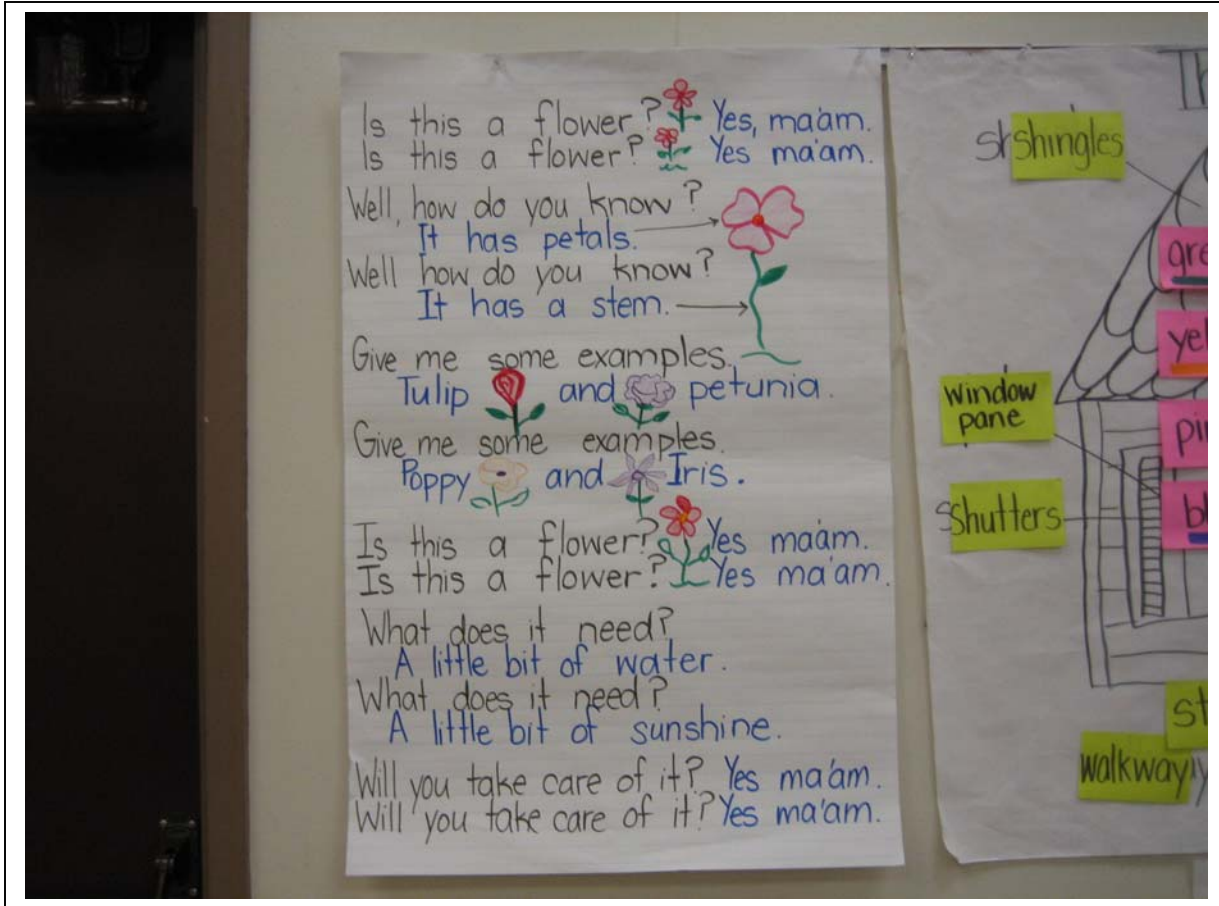 Is this a flower? Yes, ma'am.
Is this a flower? Yes ma'am.
Well, how do you know?
It has petals.
Well how do you know?
It has a stem.
Give me some examples.
Tulip and petunia.
Give me some examples.
Poppy and Iris.
Is this a flower? Yes ma'am.
Is this a flower? Yes ma'am.
What does it need?
A little bit of water.
What does it need?
A little bit of sunshine.
Will you take care of it? Yes ma'am.
Will you take care of it? Yes ma'am.
shingles
window
pane
shutters
walkway